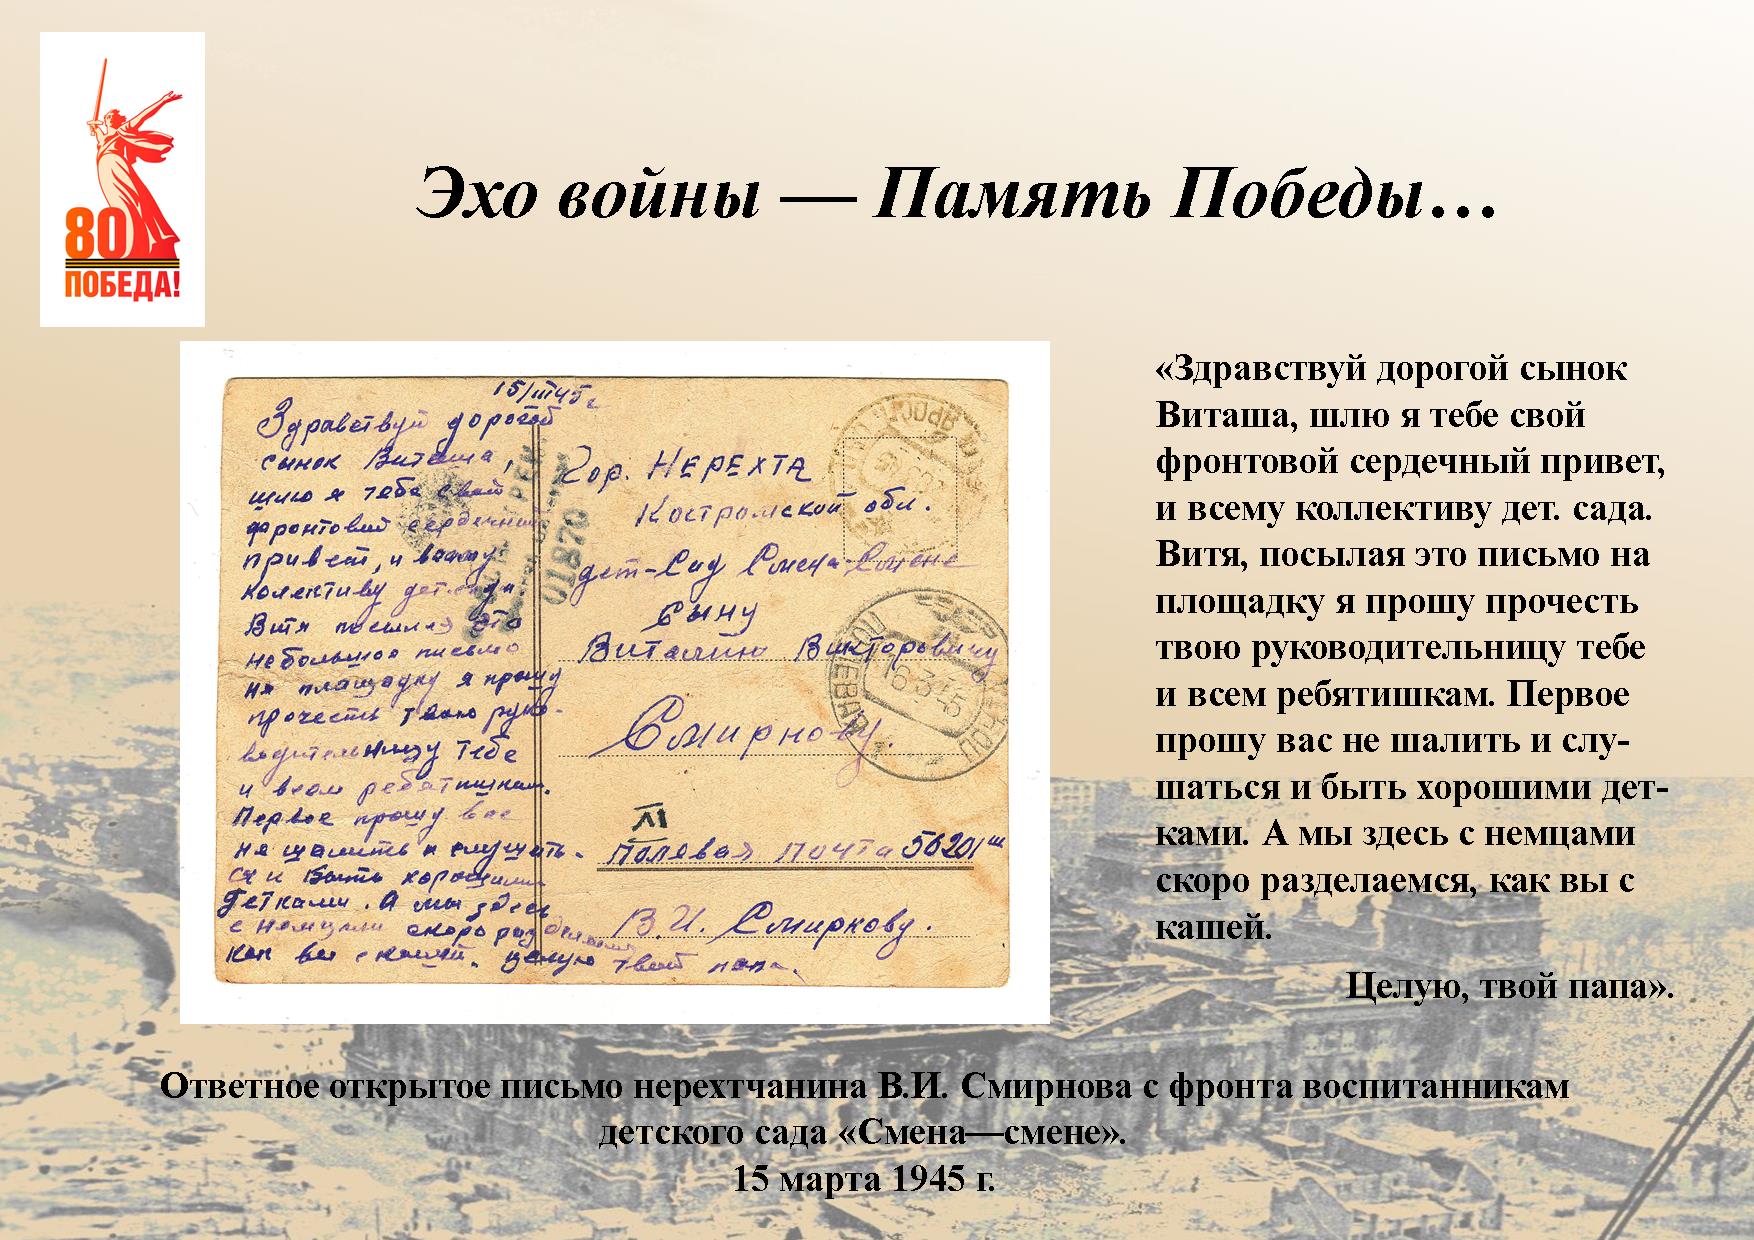 80
ПОБЕДА!
Эхо войны — Память Победы…
15/III 45 г
Здравствуй дорогой
сынок Виташа,
шлю я тебе свой
фронтовой сердечный
привет, и всему
колективу дет. сада.
Витя посылая это
небольшое письмо
на площадку я прошу
прочесть твою руко-
водительницу тебе
и всем ребятишкам.
Первое прошу вас
не шалить и слушать-
ся и быть хорошими
детками. А мы здесь
с немцами скоро разделаемся
как вы с кашей. целую твой папа.
01870
Гор. НЕРЕХТА
Костромской обл.
дет-Сад Смена-Смене
Сыну
Виталию Викторовичу
Смирнову.
16.3.45
Полевая почта 56201 ш
В.И. Смирнову.
«Здравствуй дорогой сынок
Виташа, шлю я тебе свой
фронтовой сердечный привет,
и всему коллективу дет. сада.
Витя, посылая это письмо на
площадку я прошу прочесть
твою руководительницу тебе
и всем ребятишкам. Первое
прошу вас не шалить и слу-
шаться и быть хорошими дет-
ками. А мы здесь с немцами
скоро разделаемся, как вы с
кашей.
Целую, твой папа».
Ответное открытое письмо нерехтчанина В.И. Смирнова с фронта воспитанникам
детского сада «Смена—смене».
15 марта 1945 г.